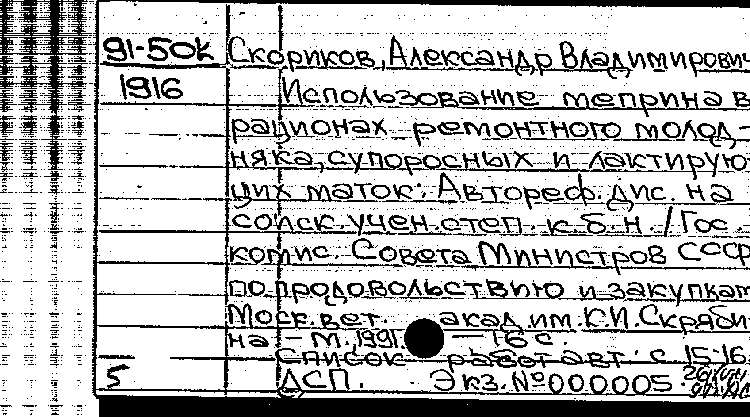 91-50к Скориков, Александр Владимирович
1916 Использование меприна в
рационах ремонтного молод-
няка, супоросных и лактирую
щих маток: Автореф. дис. на
соиск. учен. степ. к.б.н. / Гос.
комис. Совета Министров СССР
по продовольствию и закупкам
Моск. вет. акад. им. К.И. Скряби
на - М., 1991. - 16 с.
Список работ авт. с. 15-16.
5 ДСП. Экз. № 000005.